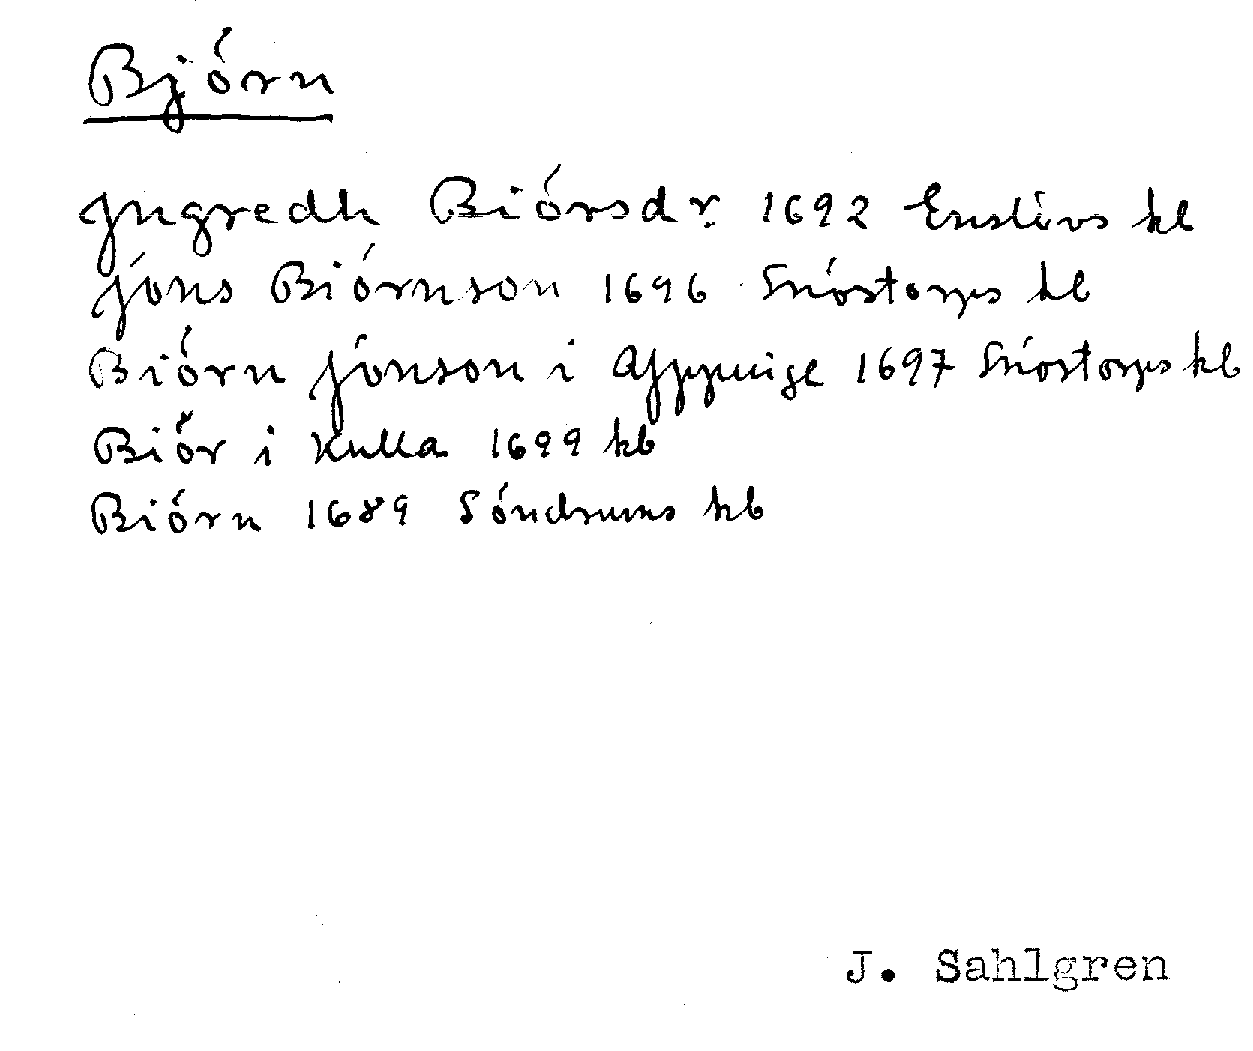 Björn
Jngredh Biörsdr. 1692 Enslövs kb
Jöns Biörnson 1696 Snöstorps kb
Biörn Jönson i 1697 Snöstorps kb
Biör i Kulla 1699 kb
Biörn 1689 Söndrums kb
J. Sahlgren